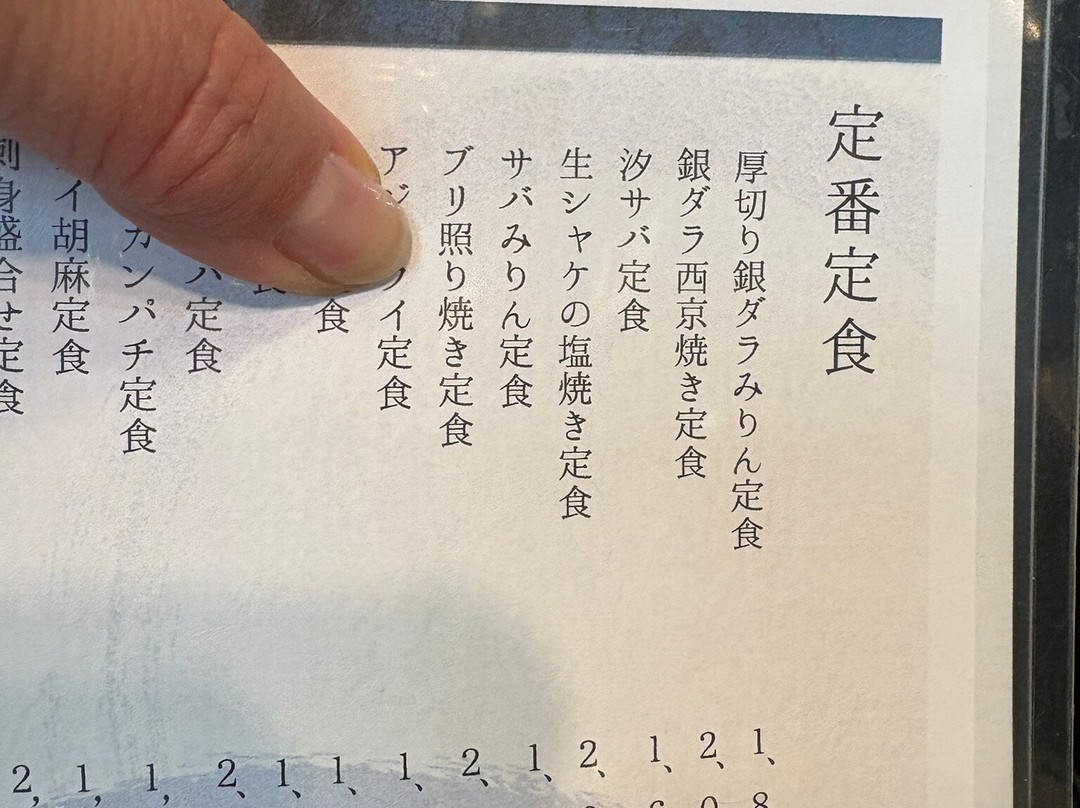 定番定食
厚切り銀ダラみりん定食
銀ダラ西京焼き定食
汐サバ定食
生シャケの塩焼き定食
サバみりん定食
ブリ照り焼き定食
アジ イ定食
食
食
バ定食
カンパチ定食
イ胡麻定食
刺身盛合せ定食
1、8
2、0
1、6
2、
1、
2、
1、
1、
1、
2、
1、
1、
2、